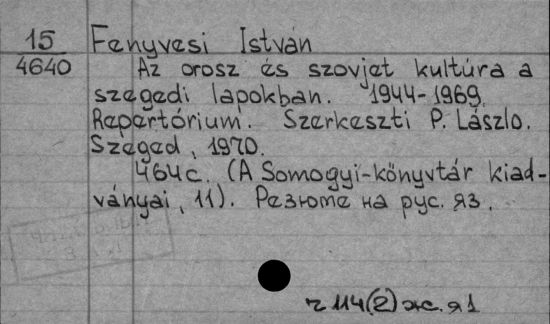 15
4640
Fenyvesi István
Az orosz és szovjet kultúra a
szegedi lapokban. 1944-1969.
Repertórium. Szerkeszti P. László.
Szeged, 1970.
464с. (A Somogyi-könyvtár kiad-
ványai, 11). Резюме на рус. яз.
2 114(2) ж. я1